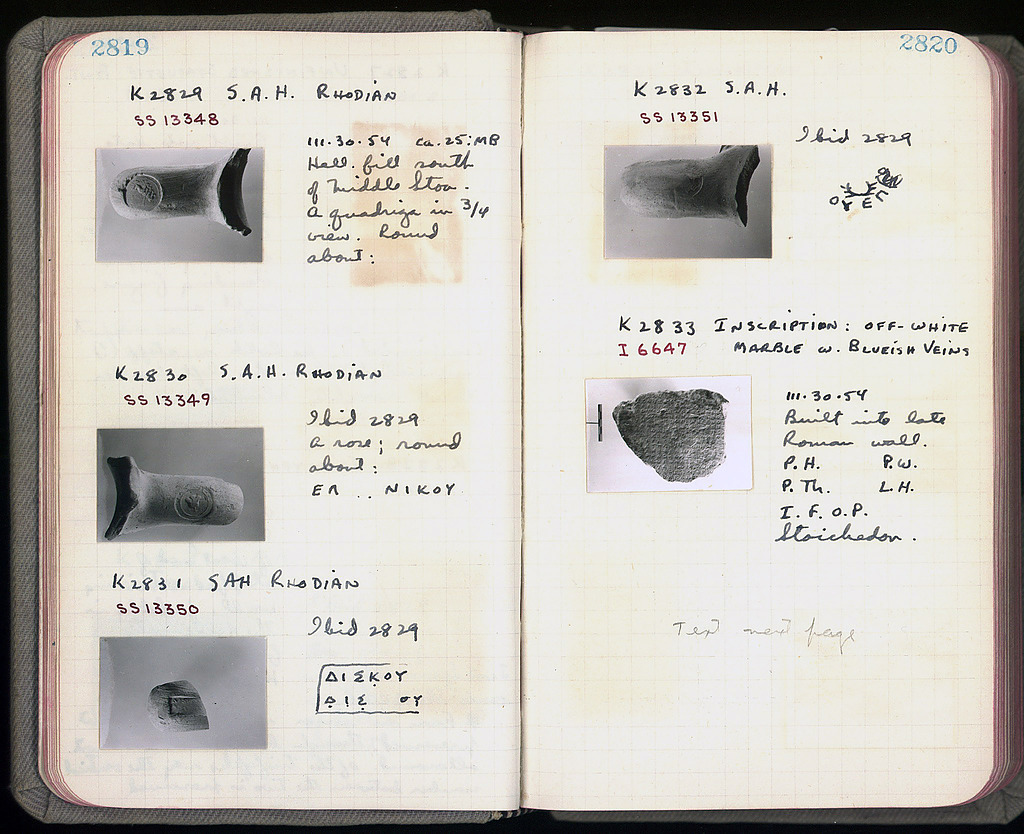 2819
K 2829 S.A.H. RHODIAN
SS 13348
III·30·54 ca. 25:MB
Hell. fill south
of Middle Stoa.
A quadriga in 3/4
view. Round
about:
K 2830 S.A.H. RHODIAN
SS 13349
Ibid 2829
A rose; round
about:
ΕΛ .. ΝΙΚΟΥ
K 2831 SAH RHODIAN
SS 13350
Ibid 2829
ΔΙΣΚΟΥ
ΔΙΣ ΟΥ
2820
K 2832 S.A.H.
SS 13351
Ibid 2829
K 2833 INSCRIPTION: OFF-WHITE
I 6647 MARBLE W. BLUEISH VEINS
III·30·54
Built into late
Roman wall.
P.H. P.W.
P.Th. L.H.
I.F.O.P.
Stoichedon.
Text next page